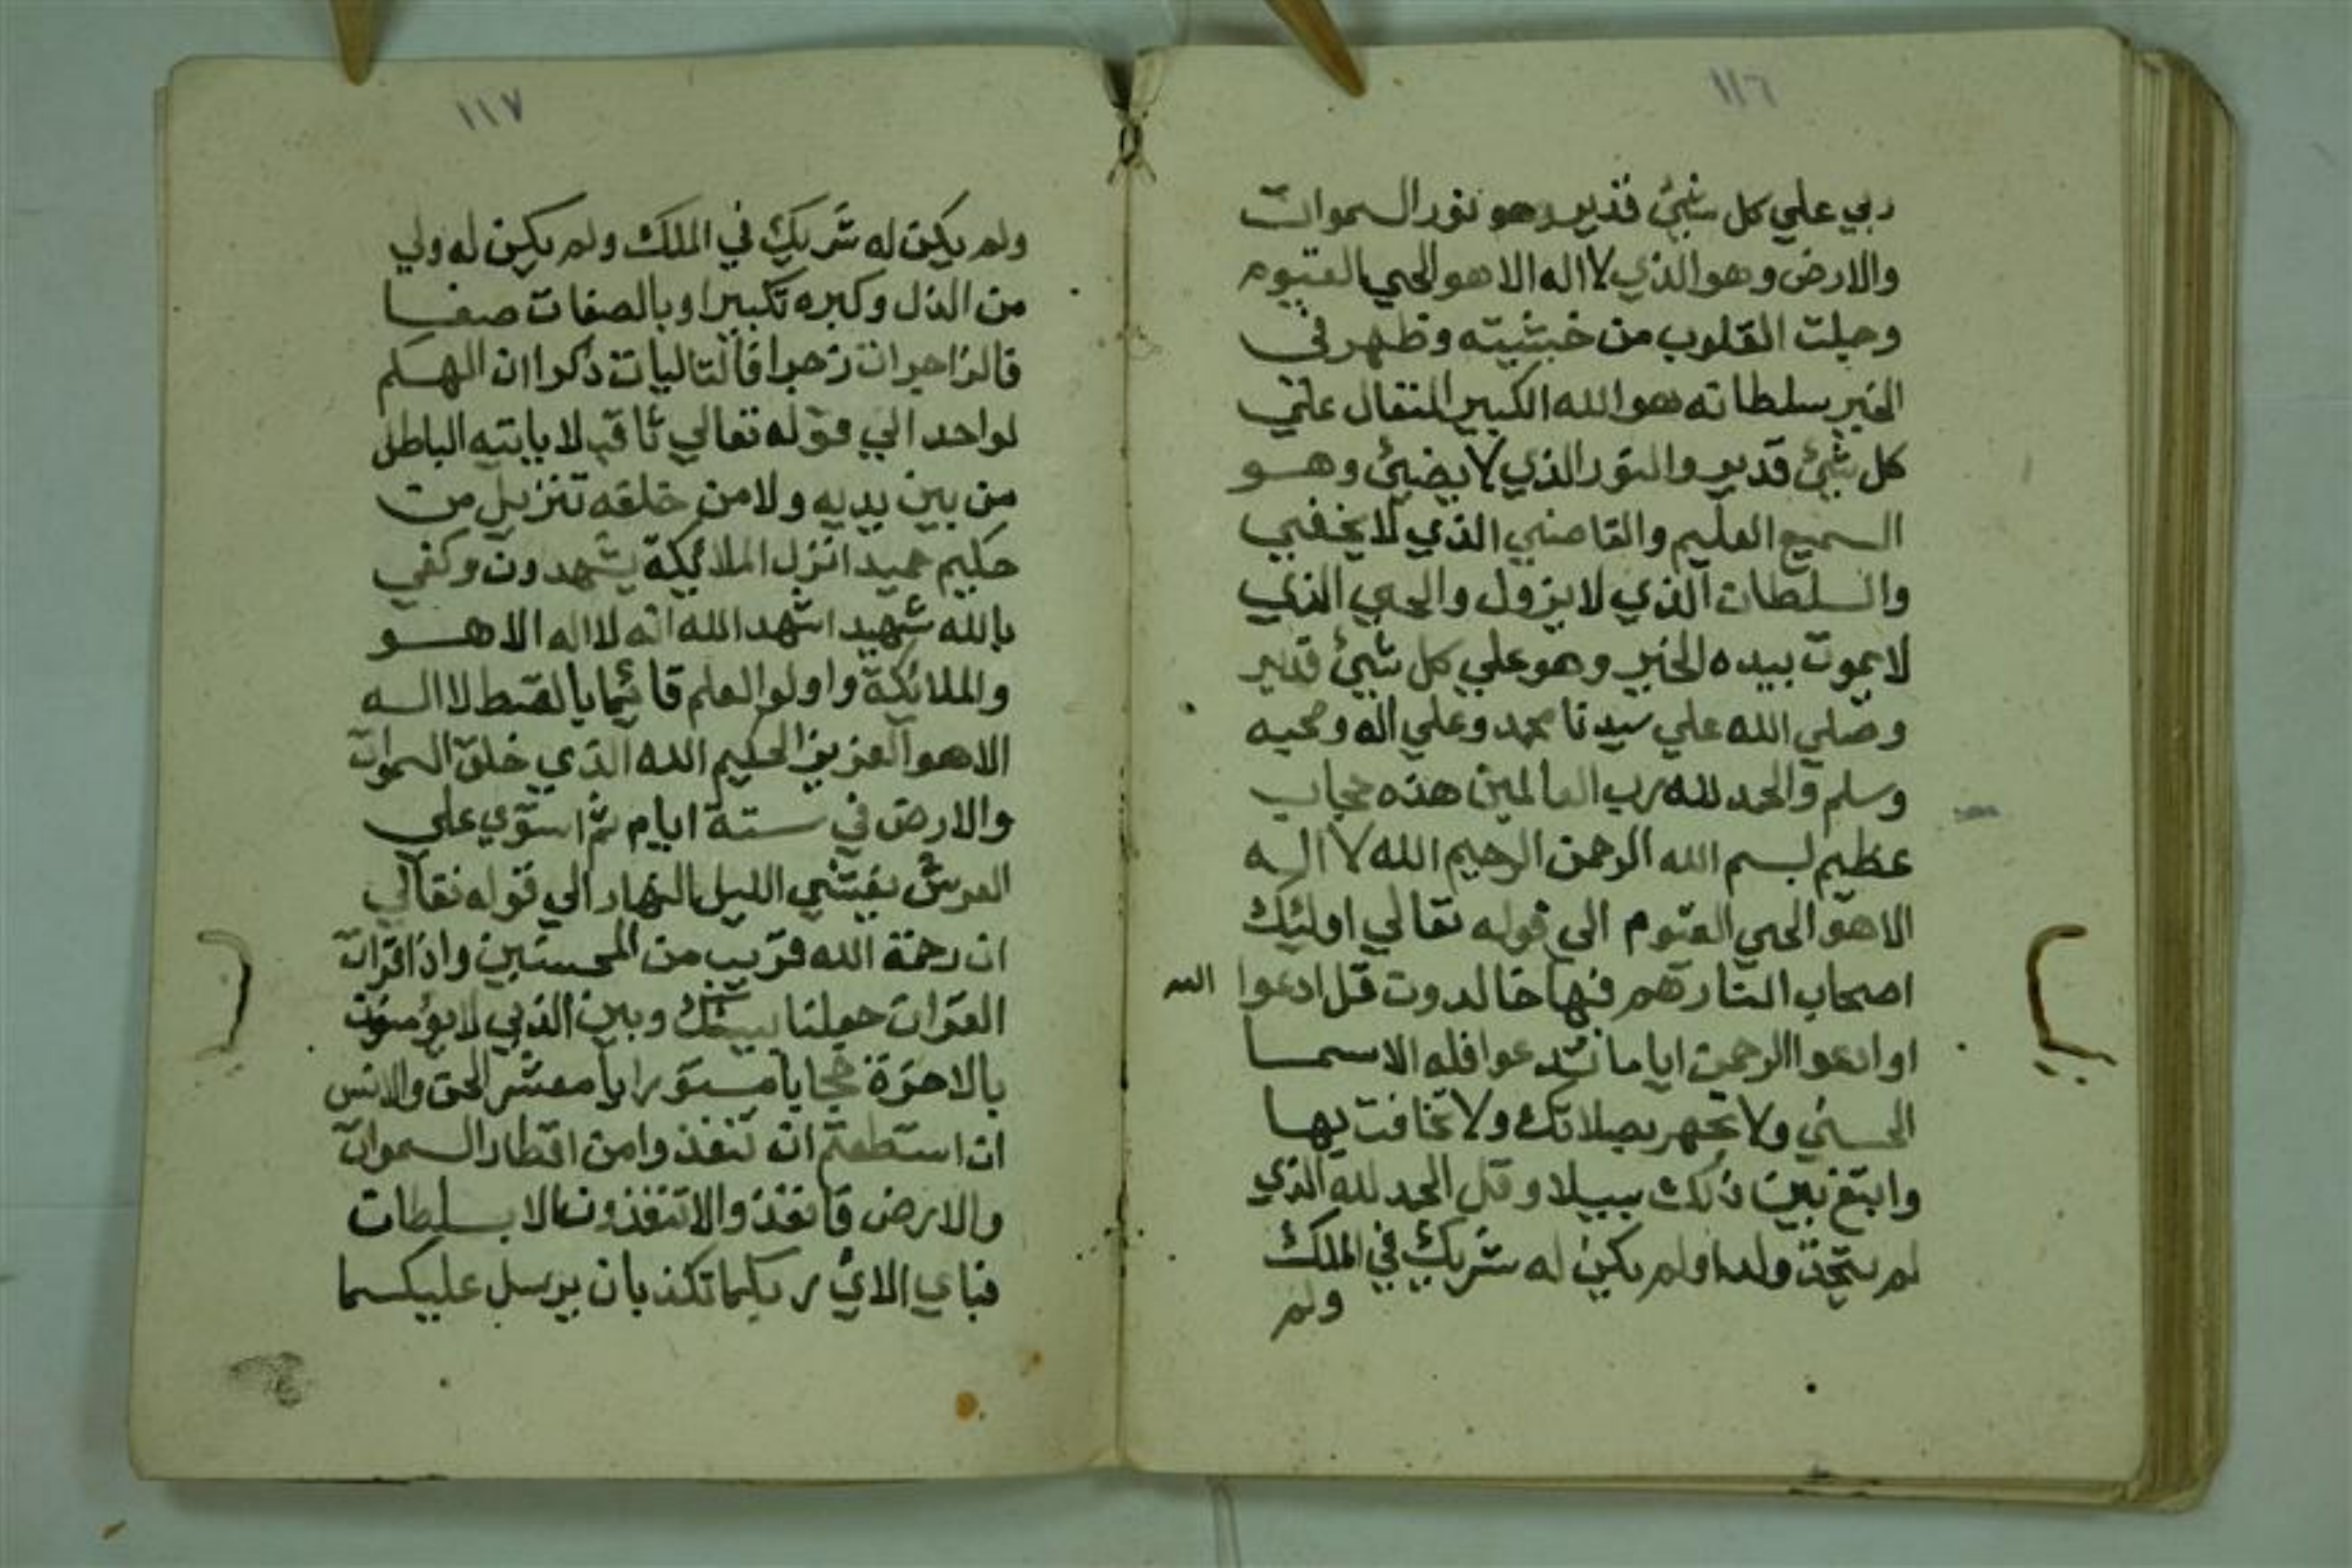 ١١٦
ربي علي كل شيئ قدير وهو نور السموات
والارض وهو الذي لا اله الا هو الحي القيوم
وجلت القلوب من خشيته وظهر في
الخير سلطانه هو الله الكبير المتعال علي
كل شيئ قدير والنور الذي لا يضيئ وهو
السميع العليم والقاضي الذي لا يخفي
والسلطان الذي لا يزول والحي الذي
لا يموت بيده الخير وهو علي كل شيئ قدير
وصلي الله علي سيدنا محمد وعلي اله وصحبه
وسلم والحمد لله رب العالمين هذه حجاب
عظيم بسم الله الرحمن الرحيم الله لا اله
الا هو الحي القيوم الي قوله تعالي اوليك
اصحاب النار هم فيها خالدون قل ادعوا الله
او ادعوا الرحمن ايا ما تدعوا فله الاسما
الحسني ولا تجهر بصلاتك ولا تخافت بها
وابتغ بين ذلك سبيلا وقل الحمد لله الذي
لم يتخذ ولدا ولم يكن له شريك في الملك
ولم
١١٧
ولم يكن له شريك في الملك ولم يكن له ولي
من الذل وكبره تكبيرا وبالصفات صفا
فالزاجرات زجرا فالتاليات ذكرا ان الهكم
لواحد الي قوله تعالي ثاقب لا ياتيه الباطل
من بين يديه ولا من خلفه تنزيل من
حكيم حميد انزل الملائكة يشهدون وكفي
بالله شهيد اشهد الله انه لا اله الا هو
والملائكة واولو العلم قائما بالقسط لا اله
الا هو العزيز الحكيم الله الذي خلق السموات
والارض في ستة ايام ثم استوي علي
العرش يغشي الليل النهار الي قوله تعالي
ان رحمة الله قريب من المحسنين واذا قرات
القران جعلنا بينك وبين الذي لا يؤمنون
بالاخرة حجابا مستورا يا معشر الجن والانس
ان استطعتم ان تنفذوا من اقطار السموات
والارض فانفذوا لا تنفذون الا بسلطان
فباي الائ ربكما تكذبان يرسل عليكما